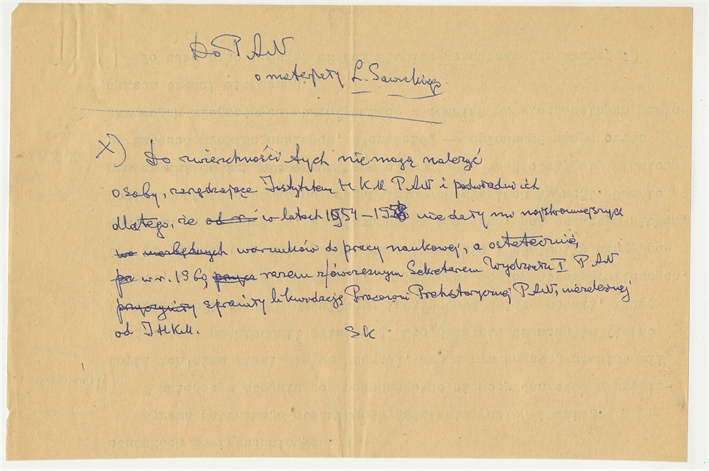 Do PAN
o materjały L. Sawickiego
x) Do zwierzchności tych nie mogą należeć
osoby, zarządzające Instytutem H K M PAN i podwładni ich
dlatego, że w latach 1954–1958 nie dały mi najskromniejszych
warunków do pracy naukowej, a ostatecznie,
w r. 1960, razem z ówczesnym Sekretarzem Wydziału I PAN
sprawiły likwidację Pracowni Prehistorycznej PAN, niezależnej
od IHKM. SK